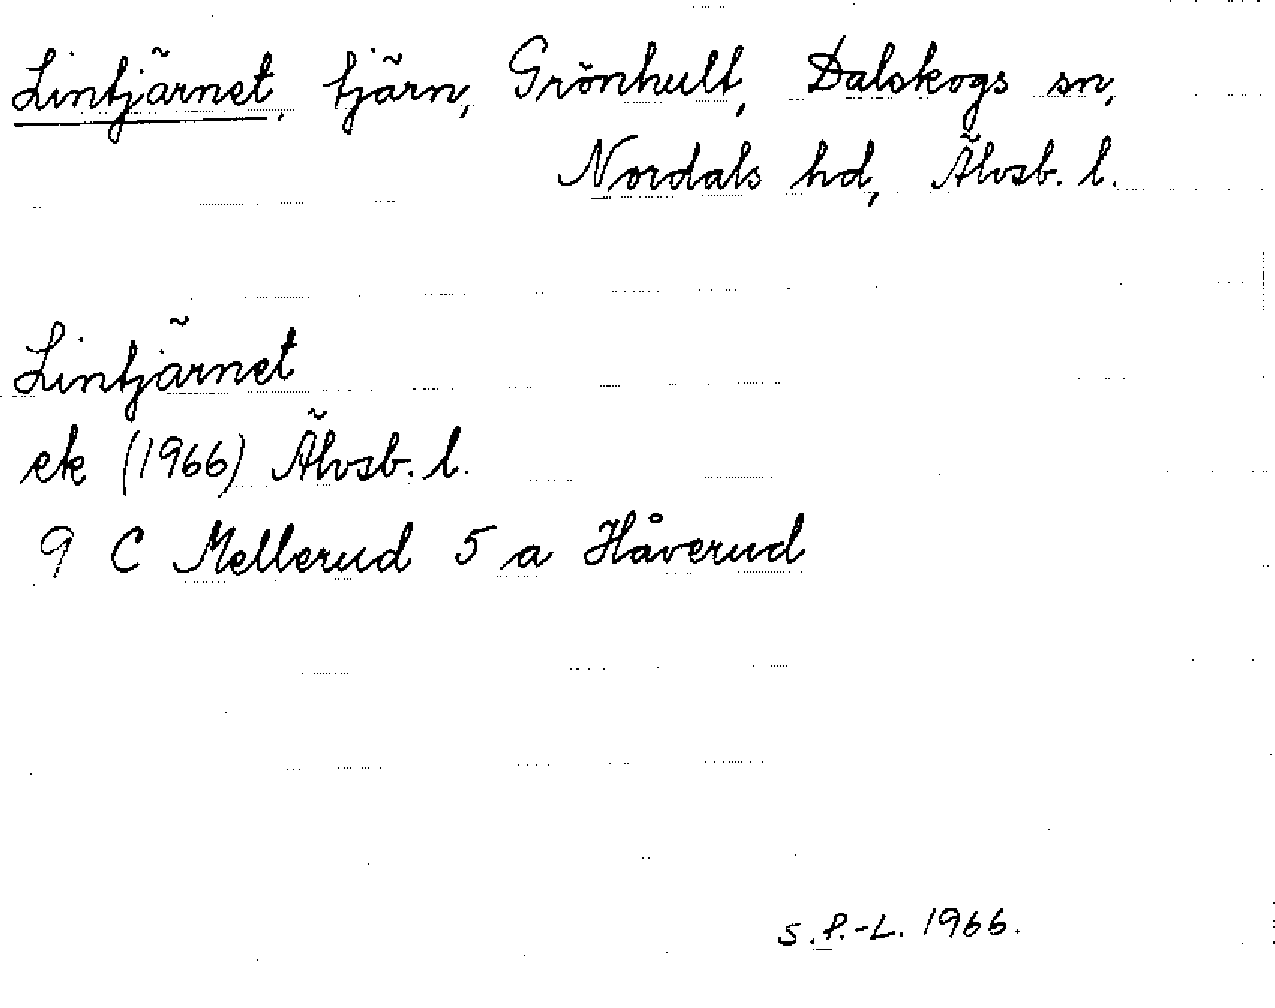 Lintjärnet, tjärn, Grönhult, Dalskogs sn,
Nordals hd, Älvsb. l.
Lintjärnet
ek (1966) Älvsb. l.
9 C Mellerud 5 a Håverud
S.P.-L. 1966.